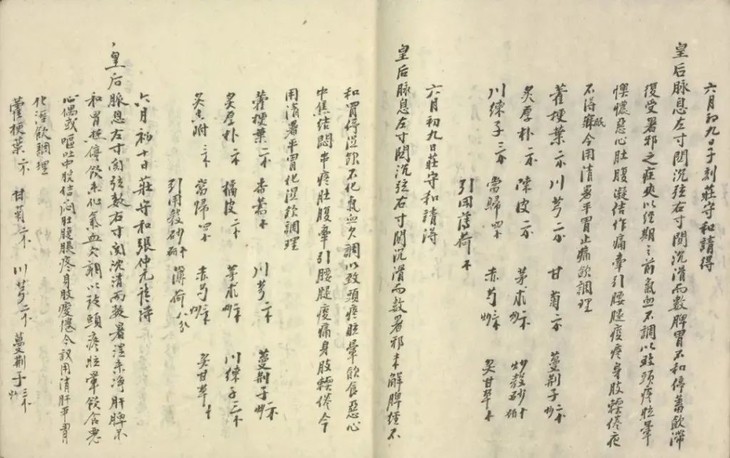 六月初九日子刻莊守和請得
皇后脉息左寸關沉弦右寸關沉滑而數脾胃不和停蓄飲滯
復受暑邪之症矣以經期之前氣血不調以致頭疼眩暈
懊憹惡心肚腹凝結作痛牽引腰腿痠疼身肢輭倦夜
不得寐今用清暑平胃止痛飲調理
藿梗葉二錢 川芎二錢 甘菊二錢 蔓荆子二錢炒
炙厚朴二錢 陳皮二錢 茅朮炒二錢 炒穀砂一錢研
川楝子三錢 當歸四錢 赤芍炒二錢 炙甘草一錢
引用薄荷一錢
六月初九日莊守和請得
皇后脉息左寸關沉弦右寸關沉滑而數暑邪未解脾經不
和胃停溼飲不化氣血欠調以致頭疼眩暈飲食惡心
中焦結悶串疼肚腹牽引腰腿痠痛身肢輭倦今
用清暑平胃化溼飲調理
藿梗葉二錢 香薷一錢 川芎二錢 蔓荆子二錢炒
炙厚朴二錢 橘皮二錢 茅朮炒二錢 川楝子二錢炒
炙香附三錢 當歸四錢 赤芍炒二錢 炙甘草一錢
引用穀砂研一錢 薄荷八分
六月初十日莊守和張仲元請得
皇后脉息左寸關弦數右寸關沉滑而數暑溼未淨肝脾不
和胃經停飲未化氣血欠調以致頭疼眩暈飲食惡
心偶或嘔吐中脘結悶肚腹脹疼身肢痠倦今議用清肝平胃
化溼飲調理
藿梗葉二錢 甘菊三錢 川芎二錢 蔓荆子三錢炒